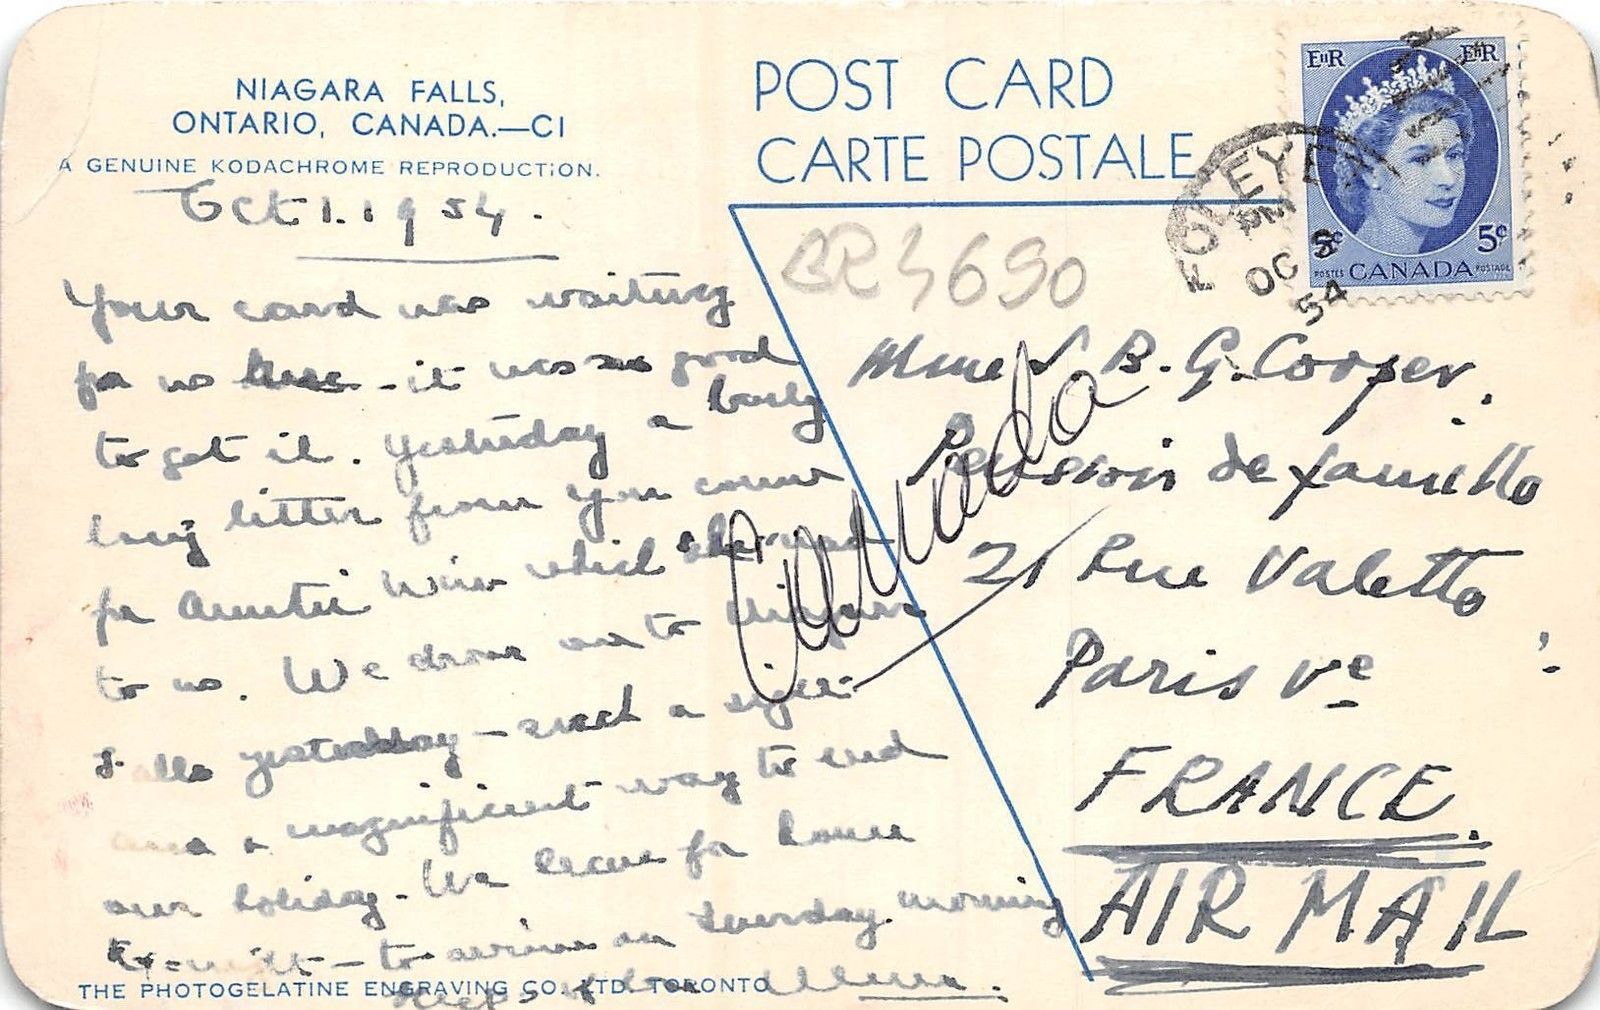 NIAGARA FALLS,
ONTARIO, CANADA.—C1
A GENUINE KODACHROME REPRODUCTION.
POST CARD
CARTE POSTALE
EIIR EIIR
5¢ 5¢
POSTES CANADA POSTAGE
PM
OC
54
Oct 1. 1954.
Your card was waiting
for us here - it was so good
to get it. Yesterday a
long letter from you came
for Auntie Win which she read
to us. We drove out to Niagara
Falls yesterday - such a sight
and a magnificent way to end
our holiday - We leave for home
to-nitt - to arrive on Sunday morning
Canada
Mme L. B. G. Cooper.
Pension de famille
21 Rue Valette
Paris Ve
FRANCE.
AIR MAIL
THE PHOTOGELATINE ENGRAVING CO. LTD. TORONTO